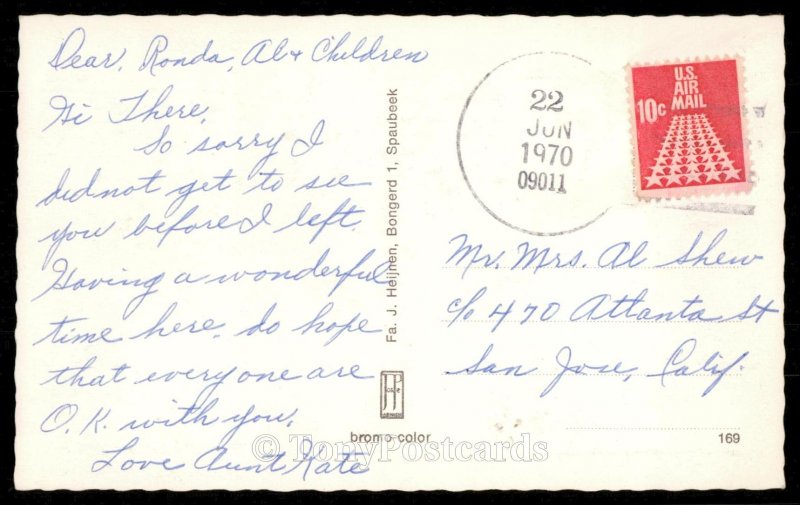 Dear, Ronda, Al + Children
Hi There,
So sorry I
did not get to see
you before I left.
Having a wonderful
time here, do hope
that everyone are
O.K. with you.
Love Aunt Kate
Fa. J. Heijnen, Bongerd 1, Spaubeek
bromo-color
169
22
JUN
1970
09011
U.S.
AIR
MAIL
10c
Mr. Mrs. Al Shew
c/o 470 Atlanta St
San Jose, Calif.
© TonyPostcards